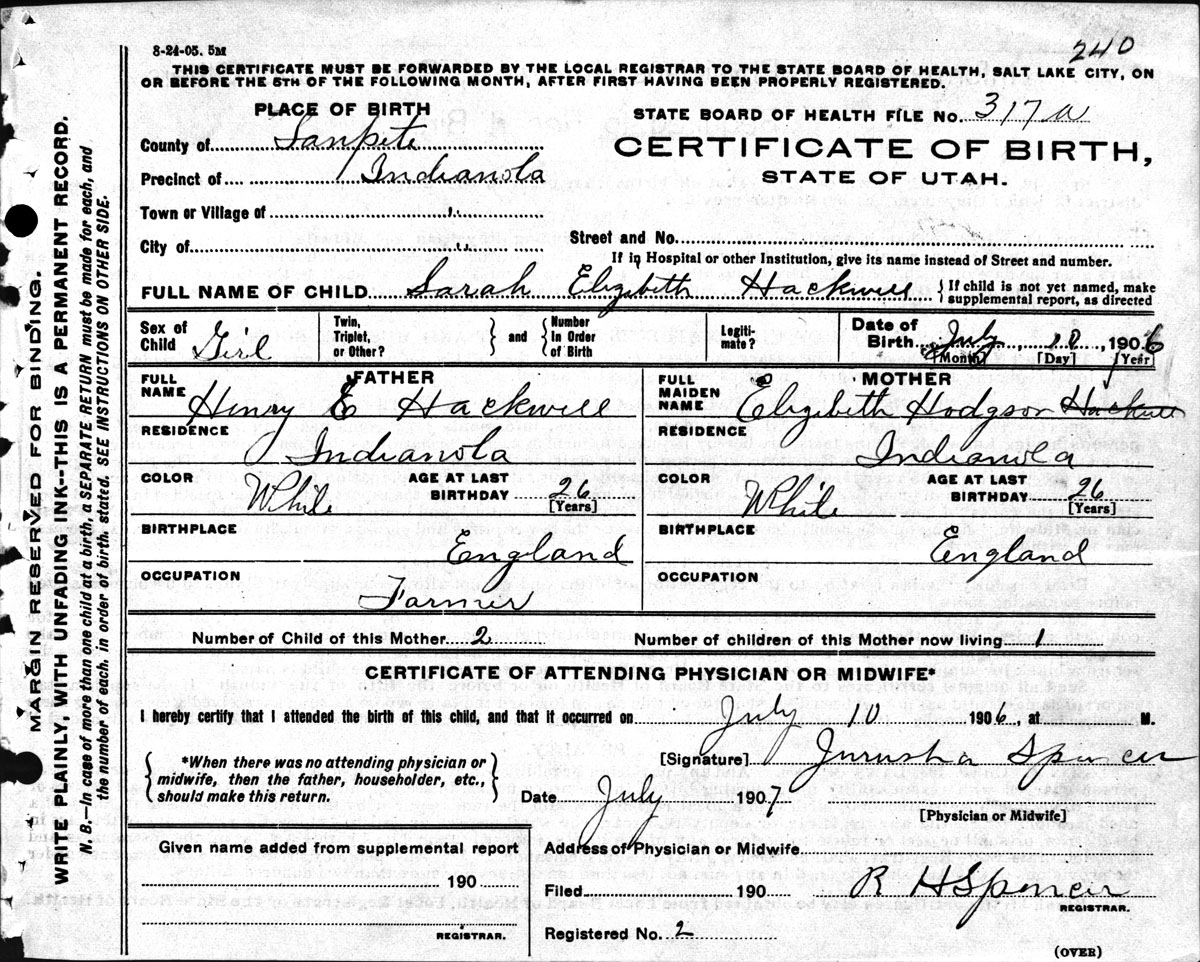 240
8-24-05. 5M
THIS CERTIFICATE MUST BE FORWARDED BY THE LOCAL REGISTRAR TO THE STATE BOARD OF HEALTH, SALT LAKE CITY, ON
OR BEFORE THE 5TH OF THE FOLLOWING MONTH, AFTER FIRST HAVING BEEN PROPERLY REGISTERED.
PLACE OF BIRTH
STATE BOARD OF HEALTH FILE No. 317a
County of Sanpete
CERTIFICATE OF BIRTH,
Precinct of Indianola
STATE OF UTAH.
Town or Village of "
City of "
Street and No.
If in Hospital or other Institution, give its name instead of Street and number.
FULL NAME OF CHILD Sarah Elizibeth Hackwill { If child is not yet named, make supplemental report, as directed
Sex of Child Girl Twin, Triplet, or Other? } and { Number in Order of Birth Legitimate? Date of Birth July 10, 1906
[Month] [Day] [Year]
FATHER MOTHER
FULL NAME Henry E Hackwill FULL MAIDEN NAME Elizibeth Hodgson Hackwill
RESIDENCE Indianola RESIDENCE Indianola
COLOR White AGE AT LAST BIRTHDAY 26 [Years] COLOR White AGE AT LAST BIRTHDAY 26 [Years]
BIRTHPLACE England BIRTHPLACE England
OCCUPATION Farmer OCCUPATION
Number of Child of this Mother 2 Number of children of this Mother now living 1
CERTIFICATE OF ATTENDING PHYSICIAN OR MIDWIFE*
I hereby certify that I attended the birth of this child, and that it occurred on July 10 1906, at M.
{ *When there was no attending physician or midwife, then the father, householder, etc., should make this return. }
[Signature] Jurusha Spencer
Date July 1907
[Physician or Midwife]
Given name added from supplemental report
190
REGISTRAR.
Address of Physician or Midwife
Filed 190 R H Spencer
REGISTRAR.
Registered No. 2
(OVER)
MARGIN RESERVED FOR BINDING.
WRITE PLAINLY, WITH UNFADING INK--THIS IS A PERMANENT RECORD.
N. B.—In case of more than one child at a birth, a SEPARATE RETURN must be made for each, and
the number of each, in order of birth, stated. SEE INSTRUCTIONS ON OTHER SIDE.